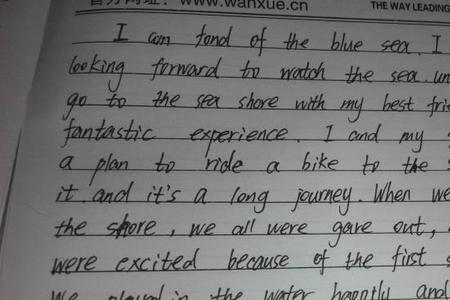 www.wanxue.cn THE WAY LEADING
I am fond of the blue sea. I
looking forward to watch the sea.
go to the sea shore with my best
fantastic experience. I and my
a plan to ride a bike to the
it. and it's a long journey. When we
the shore, we all were gave out,
were excited because of the first
We played in the water happily and